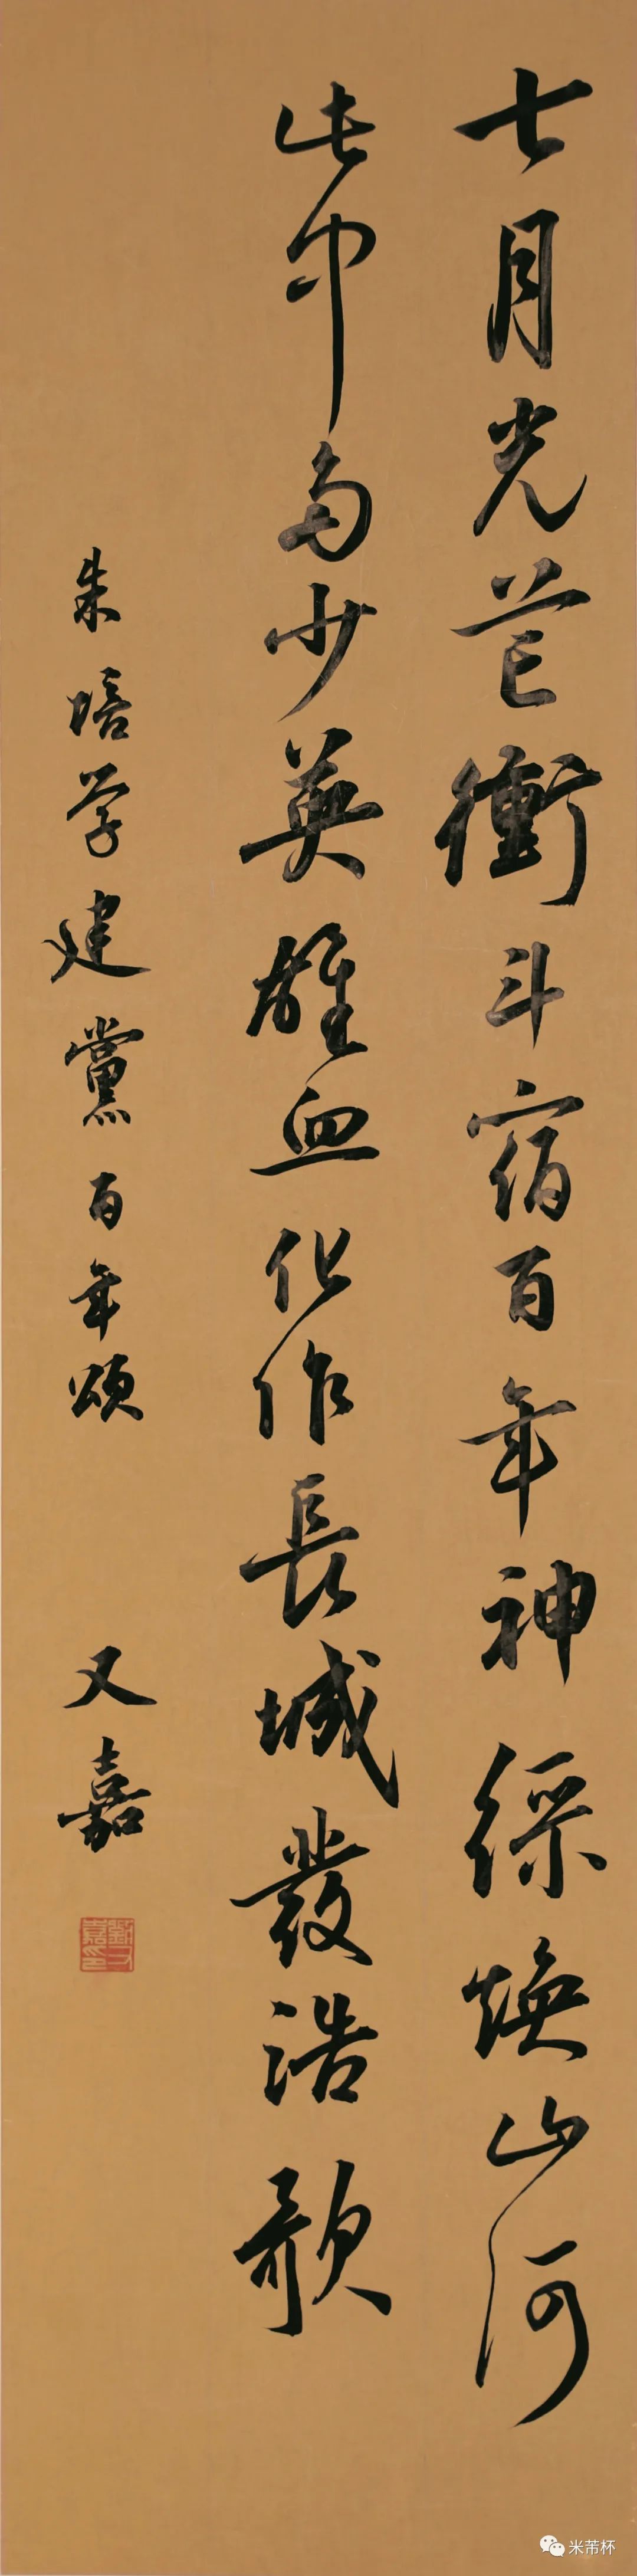 七月光芒衝斗宿百年神綵煥山河
此中多少英雄血化作長城發浩歌
朱培学建黨百年頌
又嘉
劉又嘉印
米芾杯